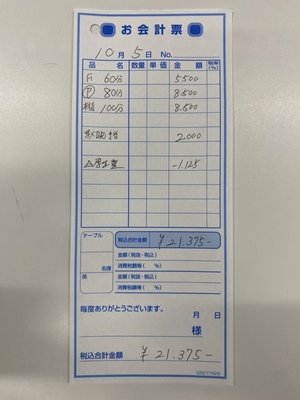 お会計票
10月 5日 No.
品 名 数量 単価 金 額 税率(%)
F 60分 5.500
Ⓟ 80分 8.500
100分 8.500
指 2.000
△厚生費 -1.125
テーブル 税込合計金額 ¥21.375-
金額(税抜・税込)
名様 消費税額等( %)
係 金額(税抜・税込)
消費税額等( %)
毎度ありがとうございます。
月 日
様
税込合計金額 ¥21.375-